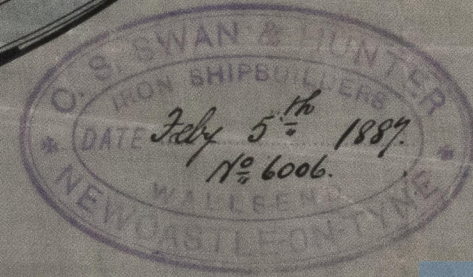 C. S. SWAN & HUNTER
IRON SHIPBUILDERS
DATE Feby 5th 1887.
No 6006.
WALLSEND
NEWCASTLE-ON-TYNE